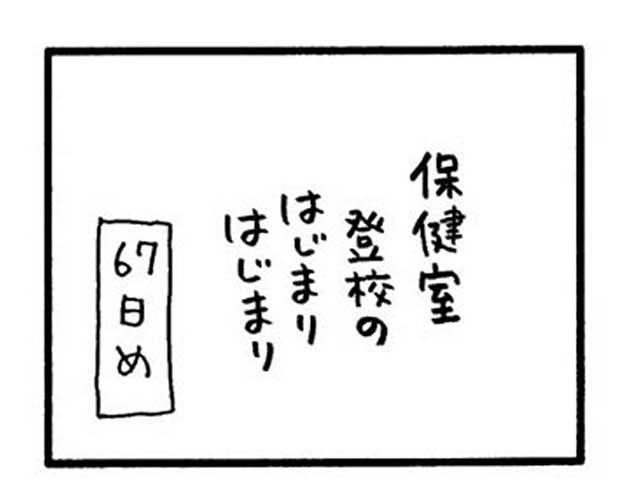 保健室
登校の
はじまり
はじまり
67日め